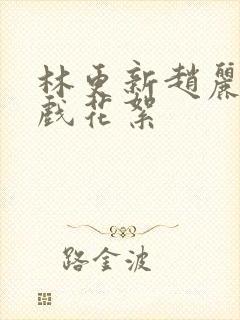 林更新趙麗
戲花絮
路金波